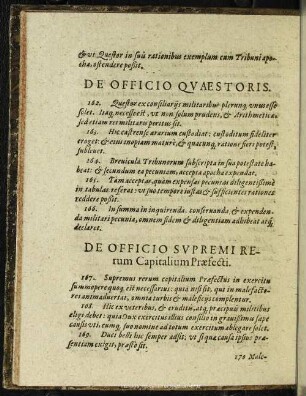 & vt Quæstor in suis rationibus exemplum cum Tribuni apo-
cha, ostendere possit.
DE OFFICIO QVAESTORIS.
162. Quæstor ex consiliarijs militaribus plerunq, vnus esse
solet. Itaq, necesse est, vt non solum prudens, & Arithmetica,
sed etiam rei militaris peritus sit.
163. Hic castrense ærarium custodiat: custoditum fideliter
eroget: & eius inopiam maturè, & quacunq, ratione fieri potest,
subleuet.
164. Breuicula Tribunorum subscripta in sua potestate ha-
beat: & secundum ea pecuniam, accepta apocha expendat.
165. Tam acceptas, quàm expensas pecunias diligentissimè
in tabulas referat: vt suo tempore iustas & sufficientes rationes
reddere possit.
166. In summa in inquirenda, conseruanda, & expenden-
da militari pecunia, omnem fidem & diligentiam adhibeat atq,
declaret.
DE OFFICIO SVPREMI RE-
rum Capitalium Præfecti.
167. Supremus rerum capitalium Præfectus in exercitu
summopere quoq, est necessarius: quia nisi sit, qui in malefacto-
res animaduertat, omnia turbis & maleficijs complentur.
168. Hic ex veteribus, & eruditis, atq, præcipuis militibus
eligi debet: quia Dux exercitus illius consilio in grauissimis sæpè
causis vti, eumq, suo nomine ad totum exercitum ablegare solet.
169. Duci belli hic semper adsit: vt si qua causa ipsius præ-
sentiam exigit, præstò sit.
170 Male-